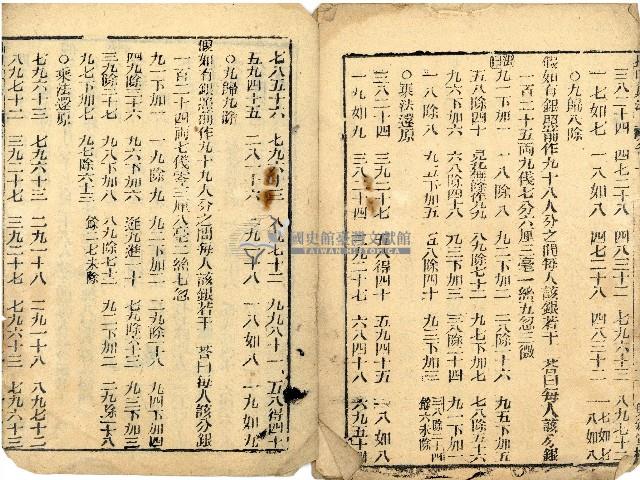 三八二十四 四七二十八 四八三十二 七九六十三 八九七十二
一七如七 一八如八 四八三十二 四八三十二 一八如八 一七如七
〇九歸八除
假如有銀照前作九十八人分之問每人該銀若干 荅曰每人該分銀
一百二十五兩九伐七分六厘三毫一絲五忽三微
法曰九一下加一 一八除八 九二下加二 二八除十六 九五下加五
五八除四十 見九無除作九九 八九除七十二 九七下加七 七八除五十六
九六下加六 六八除四十八 九三下加三 三八除二十四 九一下加一
一八除八 九五下加五 五八除四十 九三下加三 三八除二十四 餘六未除
〇乘法還原
三八二十四 三九二十七 五八得四十 五九四十五 一八如八
一九如九 三九二十七 六八四十八 六九五十四
七八五十六 七九六十三 八九七十二 九九八十一 五八得四十
五九四十五 二八一十六 二九一十八 一八如八 一九如九
〇九歸九除
假如有銀照前作九十九人分之問每人該銀若干 荅曰每人該分銀
一百二十四兩七伐零三厘八毫二絲七忽
九一下加一 一九除九 九二下加二 二九除十八 九四下加四
四九除三十六 九六下加六 逢九進一十 七九除六十三 九三下加三
三九除二十七 九八下加八 八九除七十二 九二下加二 二九除一十八
九七下加七 七九除六十三 餘二七未除
〇乘法還原
七九六十三 七九六十三 二九一十八 二九一十八 八九七十二
八九七十二 三九二十七 三九二十七 七九六十三 七九六十三
國史館臺灣文獻館
TAIWAN HISTORICA